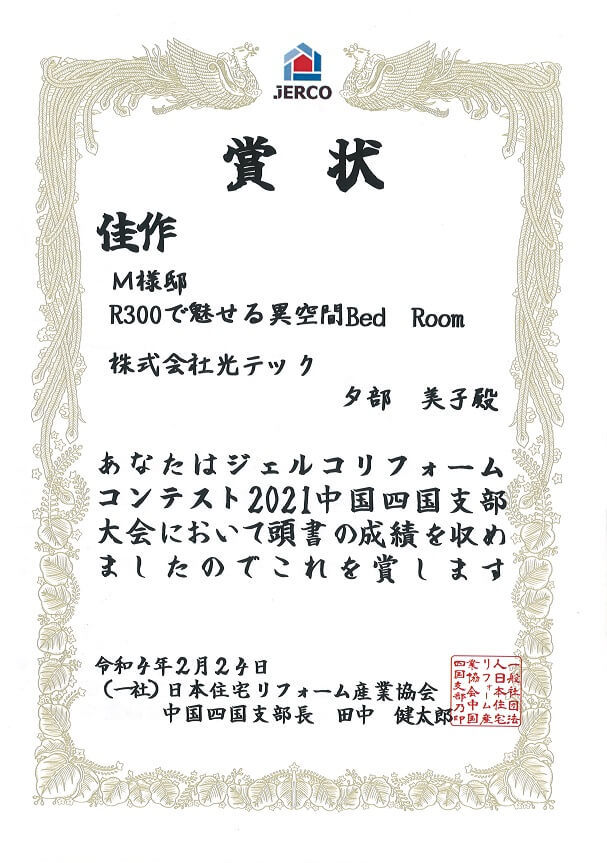 JERCO
賞 状
佳作
M様邸
R300で魅せる異空間Bed Room
株式会社光テック
夕部 美子殿
あなたはジェルコリフォーム
コンテスト2021中国四国支部
大会において頭書の成績を収め
ましたのでこれを賞します
令和4年2月24日
(一社)日本住宅リフォーム産業協会
中国四国支部長 田中 健太郎
一般社団法
人日本住宅
リフォーム産
業協会中国
四国支部乃印